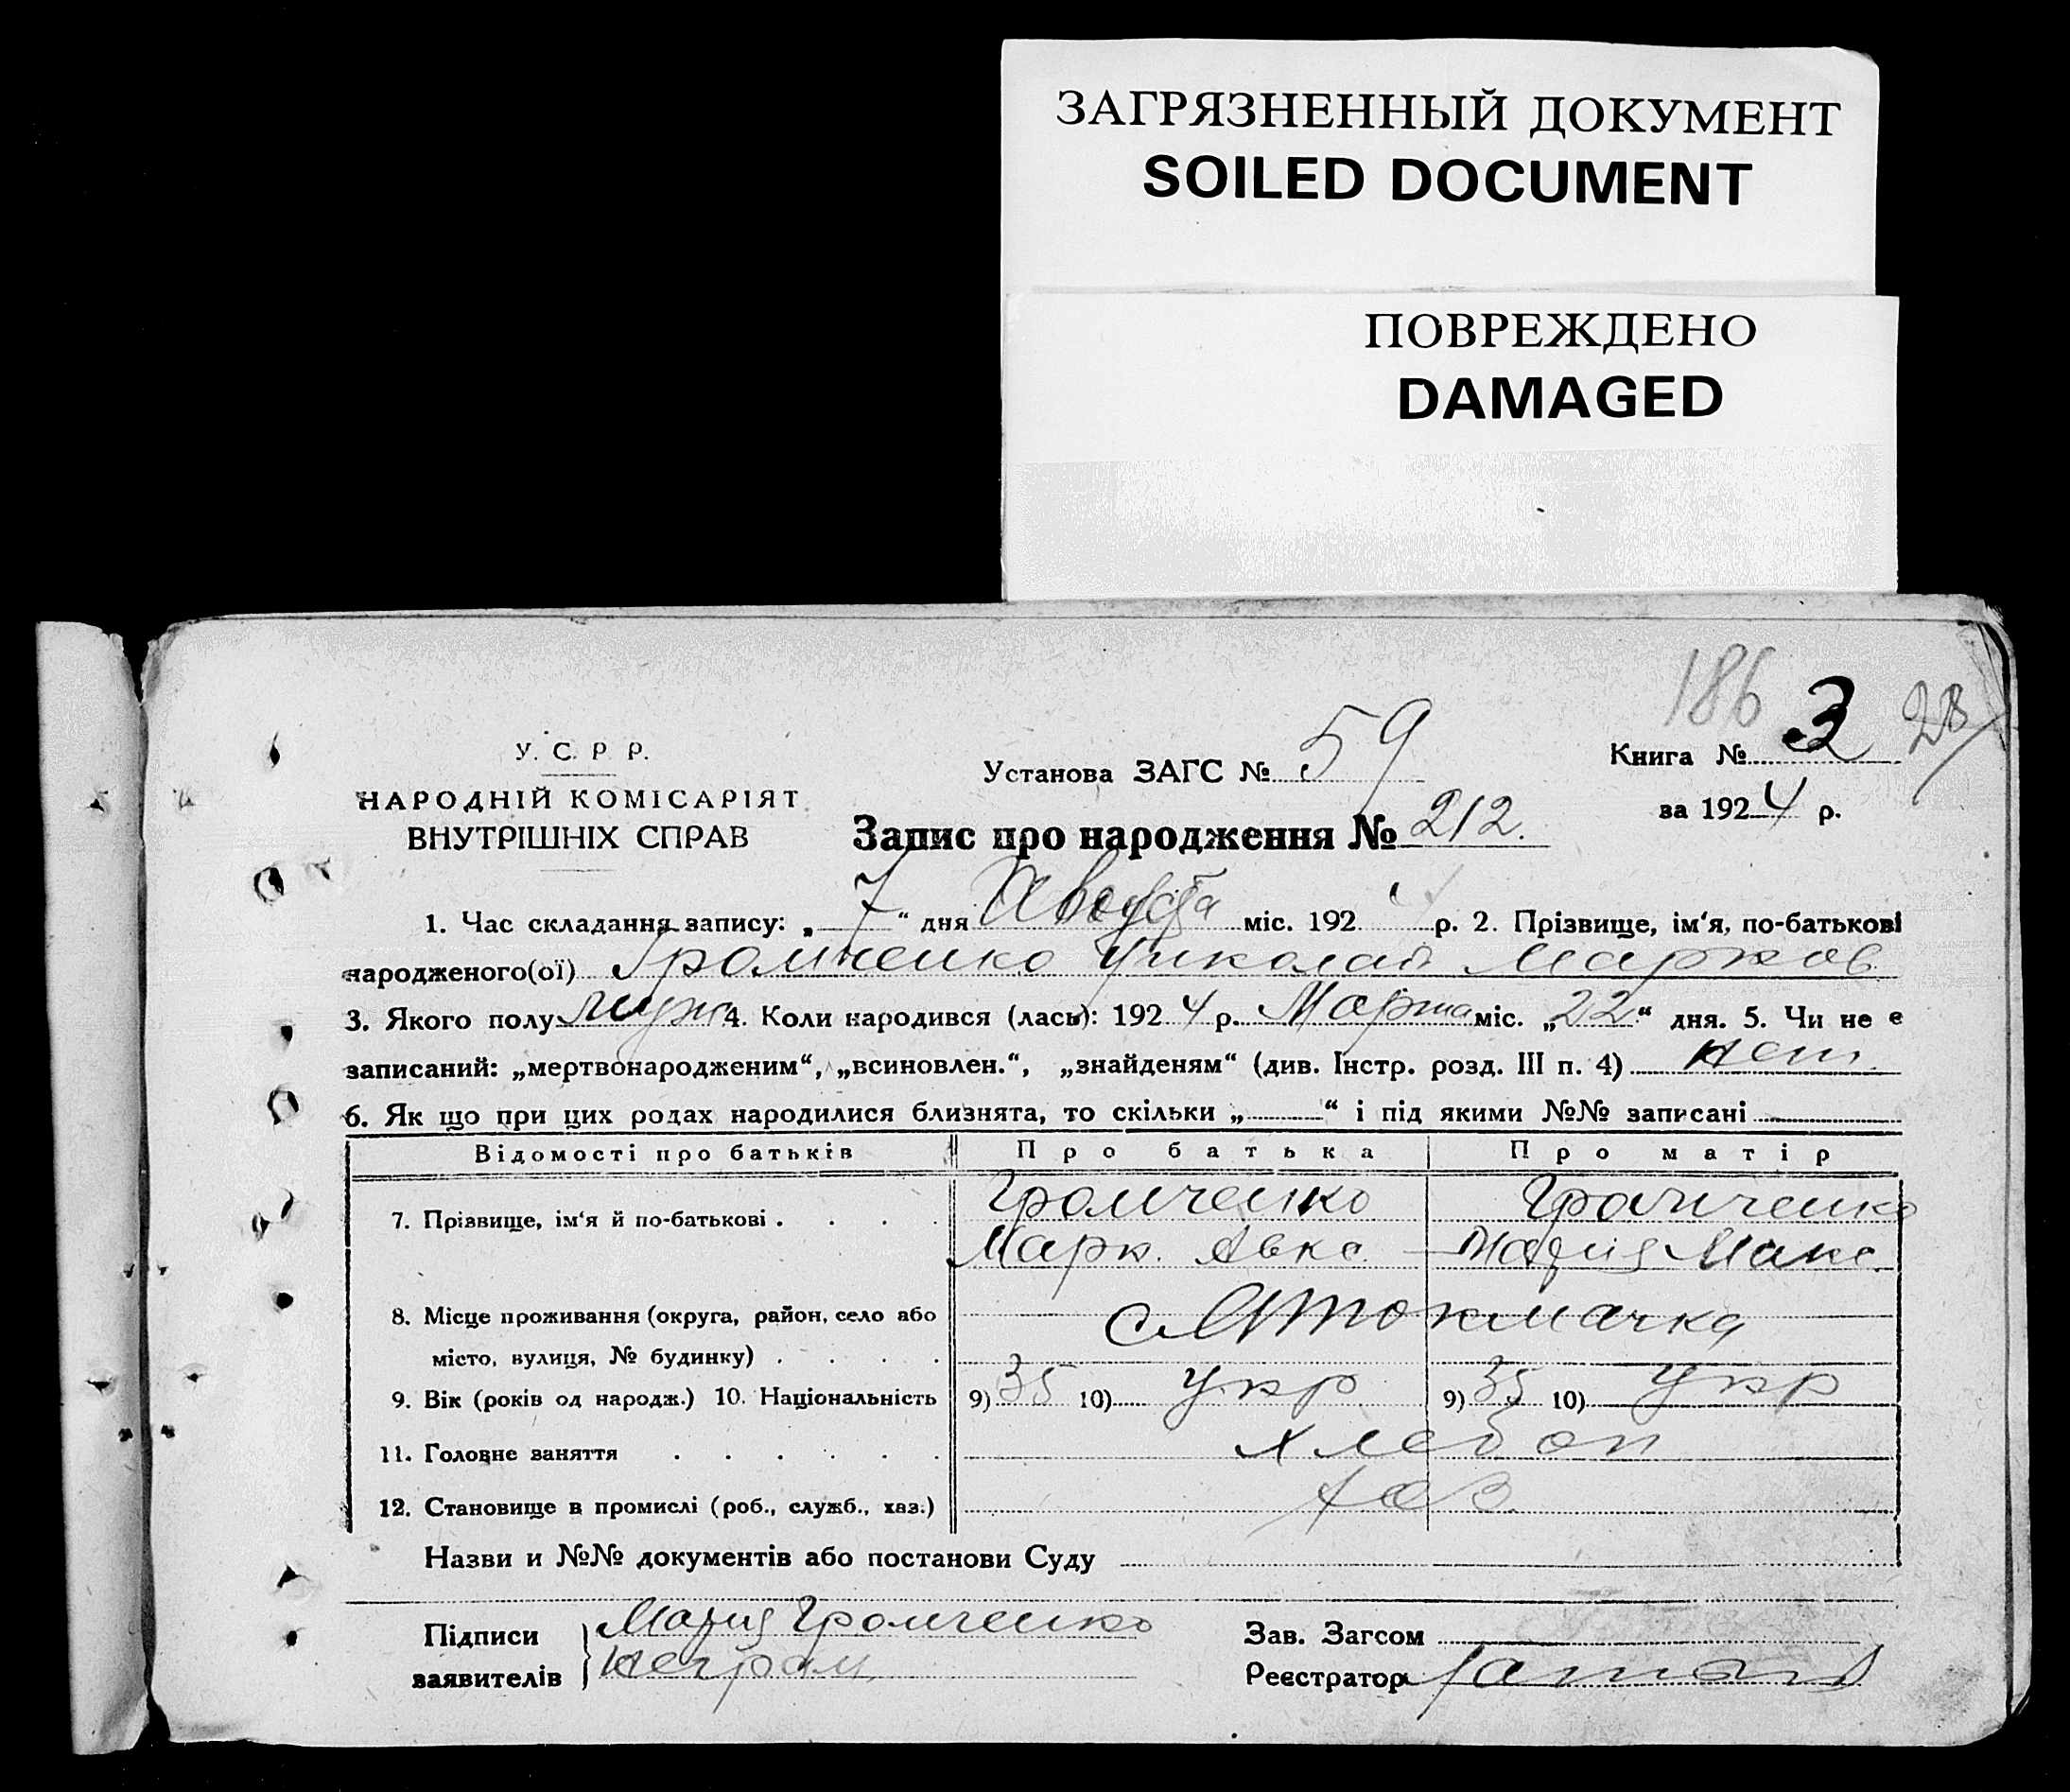 ЗАГРЯЗНЕННЫЙ ДОКУМЕНТ
SOILED DOCUMENT
ПОВРЕЖДЕНО
DAMAGED
186 3 28
У. С. Р. Р.
НАРОДНІЙ КОМІСАРІЯТ
ВНУТРІШНІХ СПРАВ
Установа ЗАГС № 59
Книга №
за 1924 р.
Запис про народження № 212.
1. Час складання запису: „ 7 “ дня Августа міс. 192 4 р. 2. Прізвище, ім‘я, по-батькові
народженого(ої) Громченко Николай Марков
3. Якого полу муж 4. Коли народився (лась): 1924 р. Марта міс. „22“ дня. 5. Чи не є
записаний: „мертвонародженим“, „всиновлен.“, „знайденям“ (див. Інстр. розд. III п. 4) нет
6. Як що при цих родах народилися близнята, то скільки „ “ і під якими №№ записані
Відомості про батьків Про батька Про матір
7. Прізвище, ім‘я й по-батькові Громченко Громченко
Марк. Авкс. Мария Макс.
8. Місце проживання (округа, район, село або
місто, вулиця, № будинку) с
9. Вік (років од народж.) 10. Національність 9) 35 10) укр 9) 35 10) укр
11. Головне заняття хлебоп
12. Становище в промислі (роб., служб., хаз.) хаз
Назви и №№ документів або постанови Суду
Підписи Мария Громченко
заявителів неграм
Зав. Загсом
Реєстратор